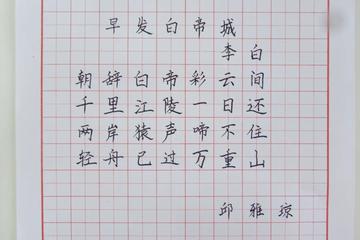 早发白帝城
李白
朝辞白帝彩云间
千里江陵一日还
两岸猿声啼不住
轻舟已过万重山
邱雅琼